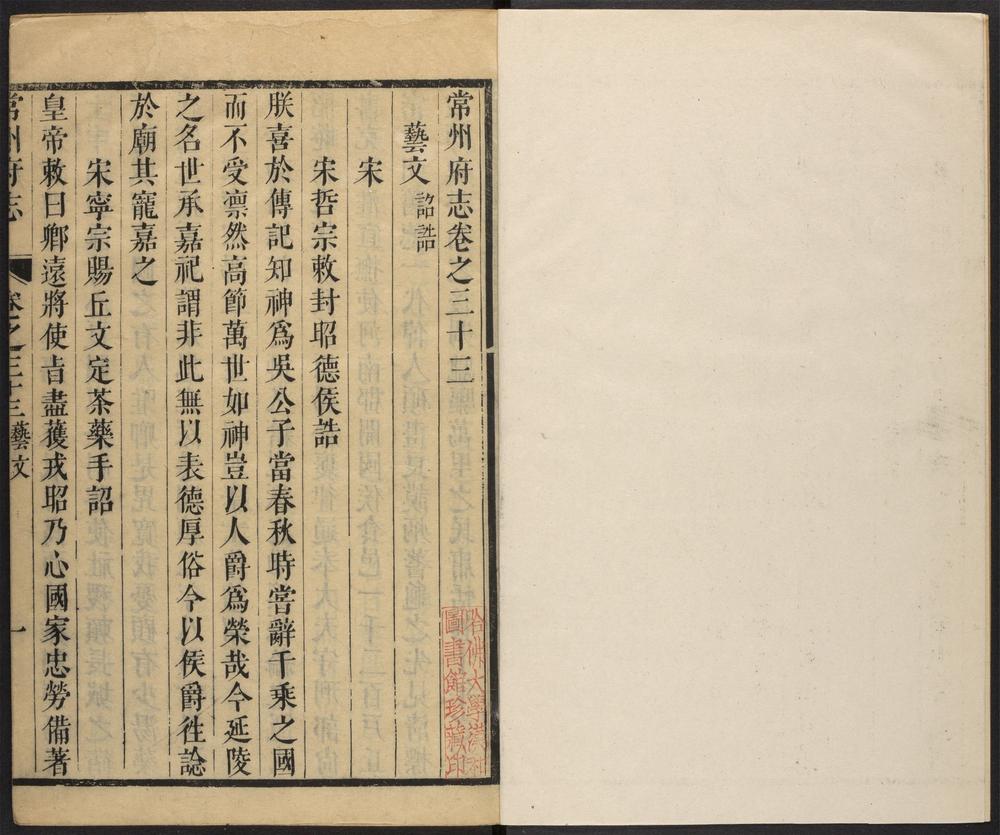 常州府志卷之三十三
藝文 詔誥
宋
宋哲宗敕封昭德侯誥
朕喜於傳記知神爲吳公子當春秋時嘗辭千乘之國
而不受凛然高節萬世如神豈以人爵爲榮哉今延陵
之名世承嘉祀謂非此無以表德厚俗今以侯爵徃諗
於廟其寵嘉之
宋寧宗賜丘文定茶藥手詔
皇帝敕曰卿遠將使㫖盡䕶戎昭乃心國家忠勞備著
常州府志
卷之三十三藝文
一
哈佛大學漢和
圖書館珍藏印